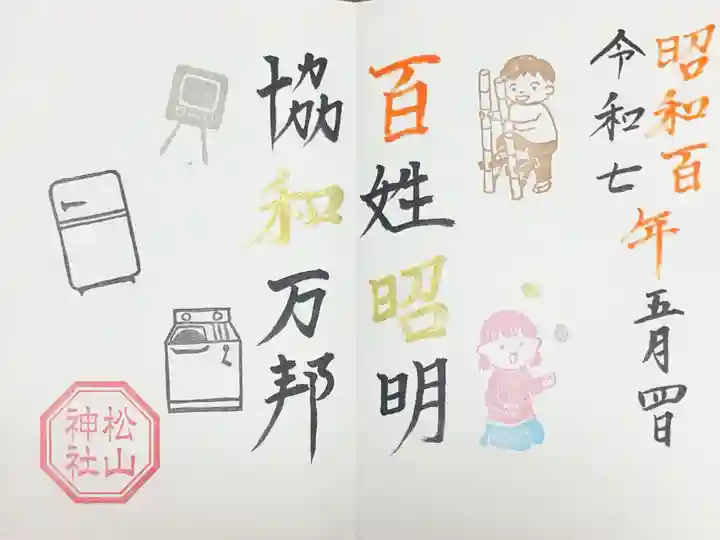 昭和百年
令和七年五月四日
百姓昭明
協和万邦
松山
神社